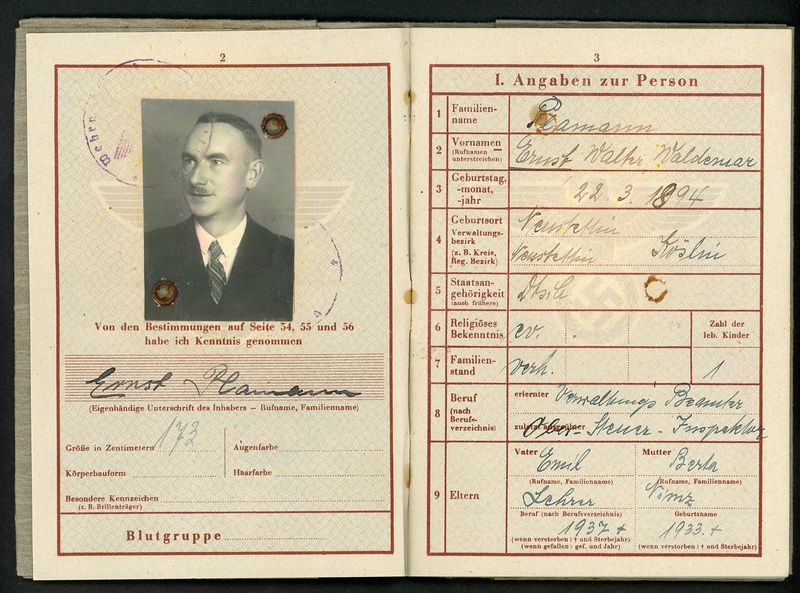 2
Wehr
Von den Bestimmungen auf Seite 54, 55 und 56
habe ich Kenntnis genommen
Ernst Plamann
(Eigenhändige Unterschrift des Inhabers – Rufname, Familienname)
Größe in Zentimetern 172
Augenfarbe
Körperbauform
Haarfarbe
Besondere Kennzeichen
(z. B. Brillenträger)
Blutgruppe
3
I. Angaben zur Person
1 Familien-
name
Plamann
2 Vornamen
(Rufnamen
unterstreichen)
Ernst Walter Waldemar
3 Geburtstag,
-monat,
-jahr
22. 3. 1894
4 Geburtsort
Verwaltungs-
bezirk
(z. B. Kreis,
Reg. Bezirk)
Neustettin
Neustettin Köslin
5 Staatsan-
gehörigkeit
(auch frühere)
Dtsch
6 Religiöses
Bekenntnis
ev.
Zahl der
leb. Kinder
7 Familien-
stand
verh.
1
8 Beruf
(nach
Berufs-
verzeichnis)
erlernter Verwaltungs Beamter
zuletzt ausgeübter
Ober-Steuer-Inspektor
9 Eltern
Vater
Emil
(Rufname, Familienname)
Lehrer
Beruf (nach Berufsverzeichnis)
1937 +
(wenn verstorben: † und Sterbejahr)
(wenn gefallen: gef. und Jahr)
Mutter
Berta
(Rufname, Familienname)
Nimz
Geburtsname
1933. +
(wenn verstorben: † und Sterbejahr)